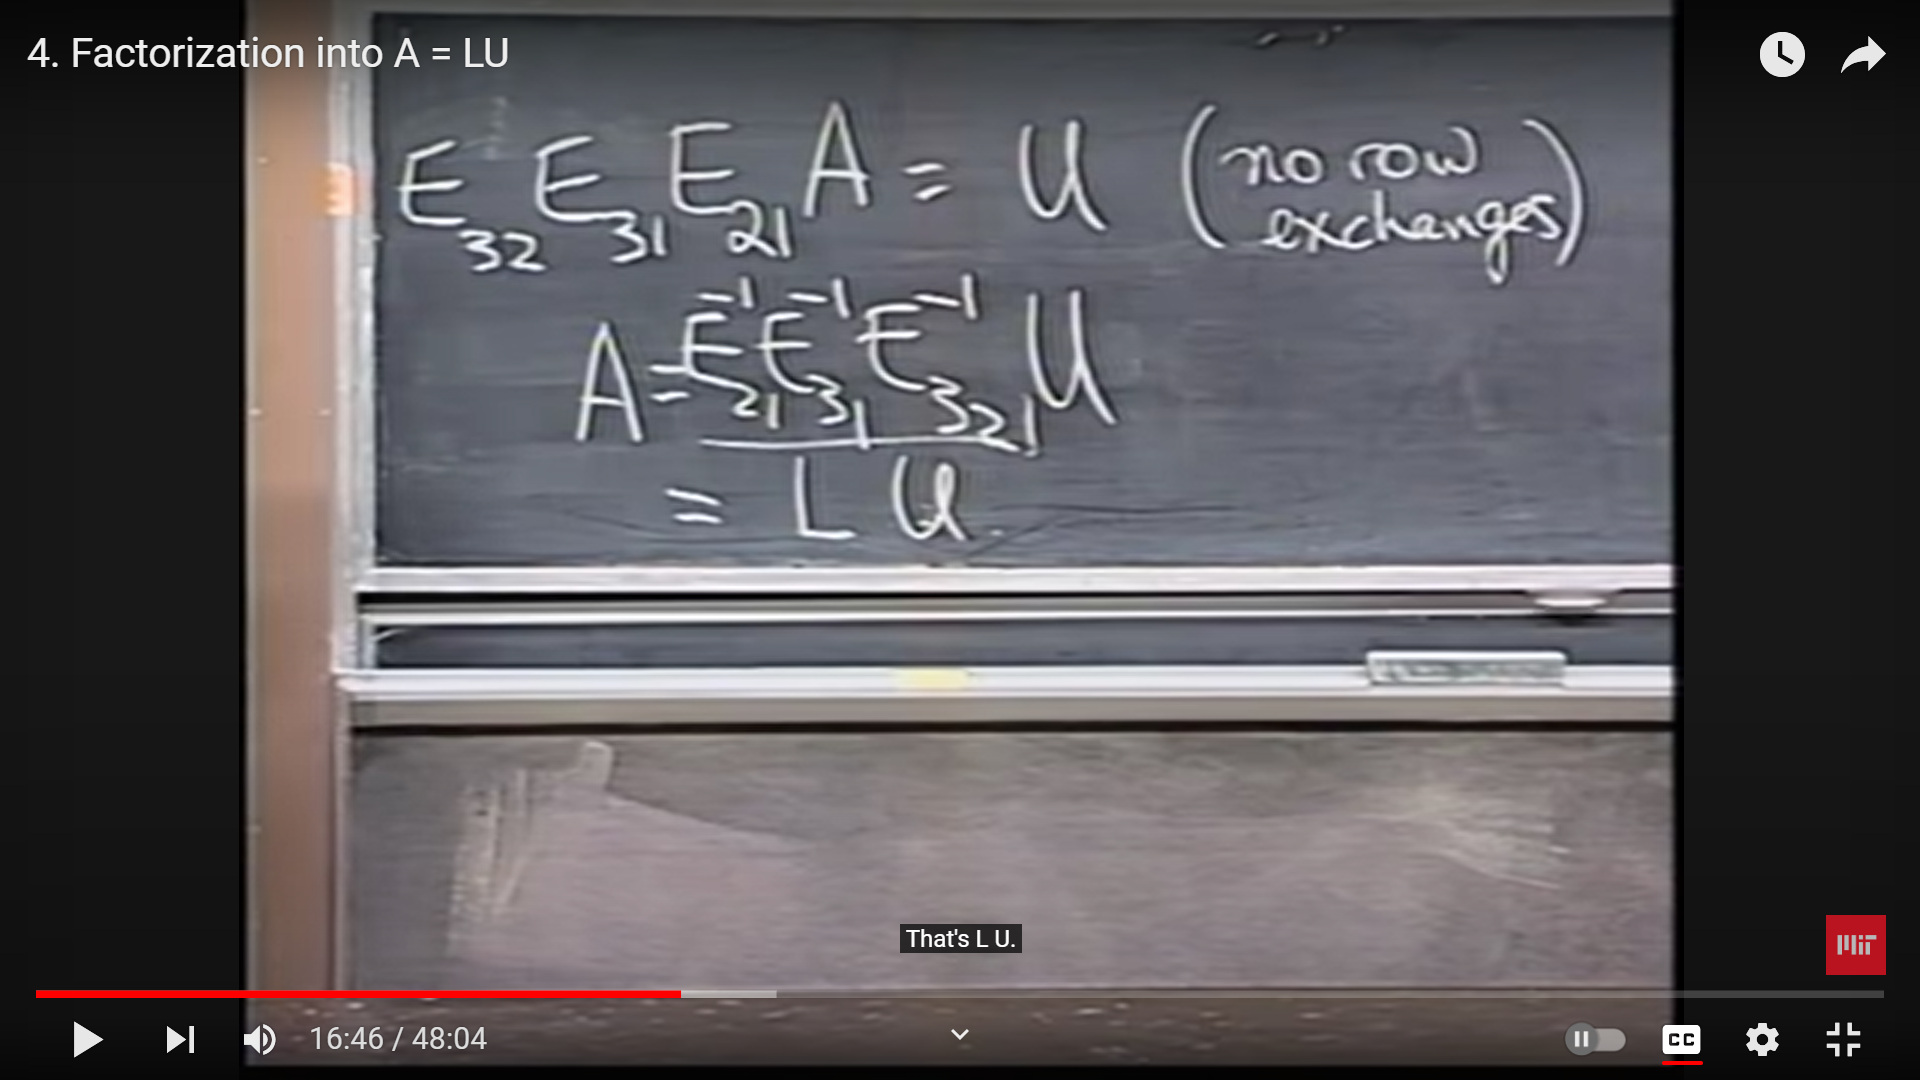 4. Factorization into A = LU
E₃₂ E₃₁ E₂₁ A = U (no row
exchanges)
A = E₂₁⁻¹ E₃₁⁻¹ E₃₂₁⁻¹ U
= L U.
That's L U.
MIT
16:46 / 48:04
CC